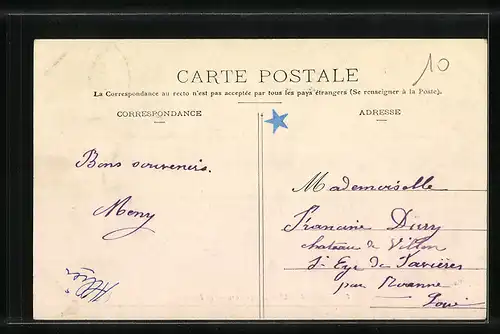 10
CARTE POSTALE
La Correspondance au recto n'est pas acceptée par tous les pays étrangers (Se renseigner à la Poste).
CORRESPONDANCE
ADRESSE
Bons souvenirs.
Mony
Mademoiselle
Francine Dury
chateau de
St
par Roanne
Loire